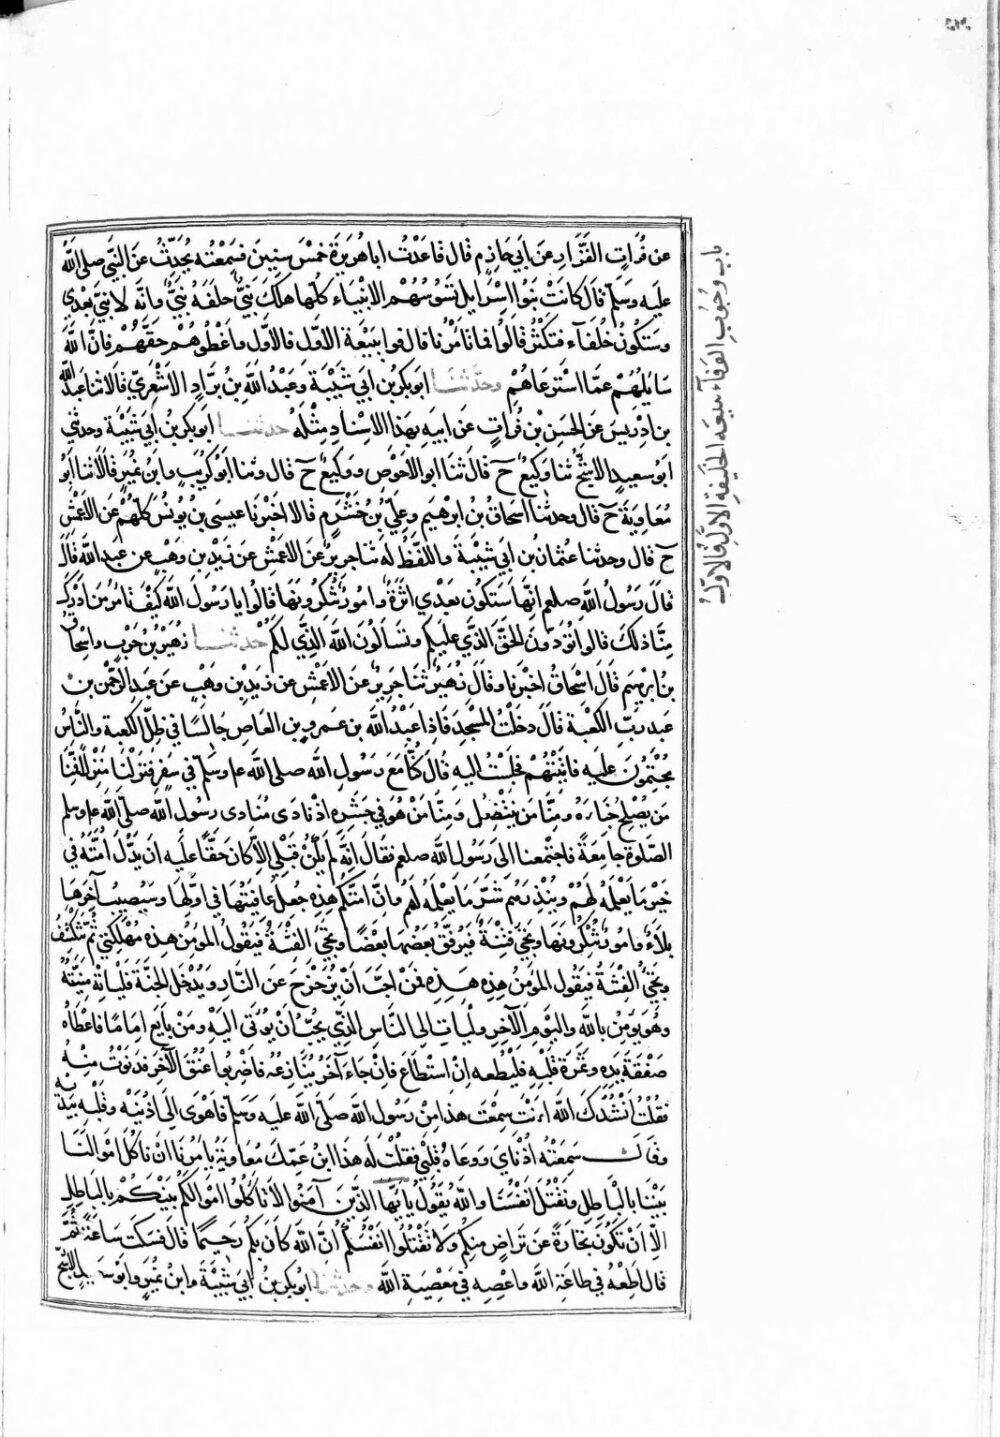 باب وجوب الوفاء ببيعة الخليفة الاول فالاول
عن فُرَاتٍ القَزَّازِ عَن ابي حَازِمٍ قال قاعَدْتُ ابا هُرَيرَةَ خمْسَ سنِينَ فسَمعْتُه يُحَدِّثُ عن النَّبي صلى اللّٰهُ
عليه وسَلم قال كانَتْ بنُوا اسْرَايل تَسُوسُهُم الانْبيَاء كلّها هلَكَ نبيٌّ خلَفَهُ نبَيٌّ وانّه لا نبيَّ بَعْدي
وسَتكُونُ خلفآء فتكثُر قالوُا فما تامُرُنا قال فوا ببَيْعَة الاوّل فالاوَّل واعْطُوهُمْ حقَّهُمْ فانَّ اللّٰهَ
سَايلهُمْ عمّا اسْترعاهُمْ وحدّثنَا ابوبكر بن ابي شَيْبَة وعَبْدُ اللّٰه بنُ بَرَّادٍ الاشْعَريّ قالا ثنا عَبدُ اللّٰه
بن ادريسَ عَن الحَسَن بْن فُراتٍ عَن ابيهِ بهَذا الاسْنادِ مثْلَهُ حدثنا ابُو بكر بنُ أبي شَيْبَة وحدثني
ابوُ سعِيدٍ الاشجّ ثنا وَكيعٌ ح قالَ ثَنا ابو الاحْوَص ووكيعٌ ح قال وثنا ابُو كُرَيبٍ وابنُ نُميرٍ قالا ثنا ابوُ
مُعَاويَة ح قال وحدثنا اسحاقُ بن ابرهيم وعَليُّ بن خَشْرَمٍ قالا اخْبرنا عيسَى بن يُونُسَ كلّهُمْ عن الاعْمَش
ح قال وحدثنا عُثمانُ بن ابي شَيْبَةَ واللّفْظُ لَه ثَنا جريرٌ عَن الاعْمش عَن زَيْد بن وَهْبٍ عن عبد اللّٰه قالَ
قالَ رَسُولُ اللّٰه صلعم انّها سَتكون بعْدي اثَرَةٌ وامُورٌ تُنكرُونَها قالُوا يا رَسُولَ اللّٰه كَيْفَ تامُرُ مَن ادْرَكَ
مِنّا ذلكَ قال تؤدّونَ الحَقّ الذَّي علَيكم وتسَالُونَ اللّٰهَ الذَّي لكُمْ حدثنا زهَيرُ بنُ حَرْبٍ واسْحاقُ
بنُ ابرهيم قَالَ اسْحاقُ اخبَرنا وقال زهَيرٌ ثنا جريرٌ عَن الاعْمَشِ عن زيدِ بن وَهْبٍ عن عبد الرَّحْمٰن بن
عَبد رَبّ الكعْبة قالَ دخلْتُ المسْجدَ فاذا عَبْدُ اللّٰه بن عمرو بن العاص جَالسًا في ظلّ الكعبة والنّاسُ
مجتمعونَ عليه فاتيْتهُمْ فجَلَسْتُ اليه فقالَ كُنّا مَعَ رَسُول اللّٰه صلى اللّٰه ع‍ا وسَلم في سَفرٍ فنَزَلْنا منْزلًا فمنّا
مَن يُصْلِحُ خبَاءَهُ ومِنّا مَن ينْتضلُ ومِنّا مَنْ هُوَ في جَشَرِه اذْ نادَى مُنادى رسُول اللّٰه صَلّى اللّٰه ع‍ا وسلم
الصّلوٰةَ جامعَةً فاجْتَمعنا الىَ رَسُول اللّٰه صلعم فقال انَّه لم يَكُنْ نبيٌّ قبلي الّا كانَ حَقًّا عليه ان يدُلَّ امّتَهُ في
خيْر ما يَعْلمُهُ لهُمْ وينذرهُمْ شَرَّ مَا يَعْلمُهُ لهم وانَّ امّتكُم هذِه جُعلَ عافيَتُها في اوّلها وسَيُصيبُ آخرَها
بلاءٌ وامُورٌ تنكرُونها وتجيُ فتنةٌ فيُرقّقُ بَعضُها بعْضًا وتجيُ الفتْنةُ فيَقولُ المؤمِنُ هذه مُهْلكتي ثُمَّ تنكشفُ
وتجيُ الفتْنةُ فيقول المؤمنُ هذه هَذِه فمنْ احَبَّ انْ يُزحْزحَ عَن النّارِ ويُدْخَل الجنّةَ فلياتِه منيّتُهُ
وهُوَ يؤمِنُ باللّٰه واليوْمِ الآخِرِ وليات الى النّاس الذّي يحُبّ انْ يُؤتى اليْهِ ومنْ بايَع امَامًا فاعْطاهُ
صَفْقَةَ يدِهِ وثمرَةَ قلبِهِ فليُطعه انْ استطاعَ فانْ جاءَ آخرُ يُنازعُه فاضْربوا عُنُقَ الآخِر فدنوْتُ منْهُ
فقلْتُ أنْشُدُكَ اللّٰهَ اءنتَ سمِعْتَ هذا منْ رسُولِ اللّٰه صَلّى اللّٰه عليْه وسَلّم فاهْوَى الى اذُنيْهِ وقَلْبِه بيدَيْهِ
وقالَ سَمعَتْهُ اُذُنايَ ووَعاهُ قلْبي فقُلْتُ لَه هَذا ابنُ عمّكَ مُعَاويَةُ يامُرُنا انْ ناكُلَ امْوالنَا
بَيْننا بالبَاطِلِ ونَقْتلَ انْفُسَنا واللّٰهُ يقولُ يا ايّها الذّينَ آمَنوا لا تاكُلوا امْوَالكُمْ بيْنكُمْ بالباطلِ
الّا انْ تكُونَ تجَارةً عن تراضٍ منكُم ولا تقْتُلُوا انفُسَكُم انَّ اللّٰه كانَ بكُمْ رَحيمًا قالَ فسَكتَ سَاعةً ثُمّ
قال اطِعْهُ في طاعَةِ اللّٰه واعْصِه في مَعْصيةِ اللّٰه وحدثنا ابوُ بكرِ بنُ ابي شيْبَةَ وابنُ نُميْرٍ وابوُ سَعيدٍ الاشجّ